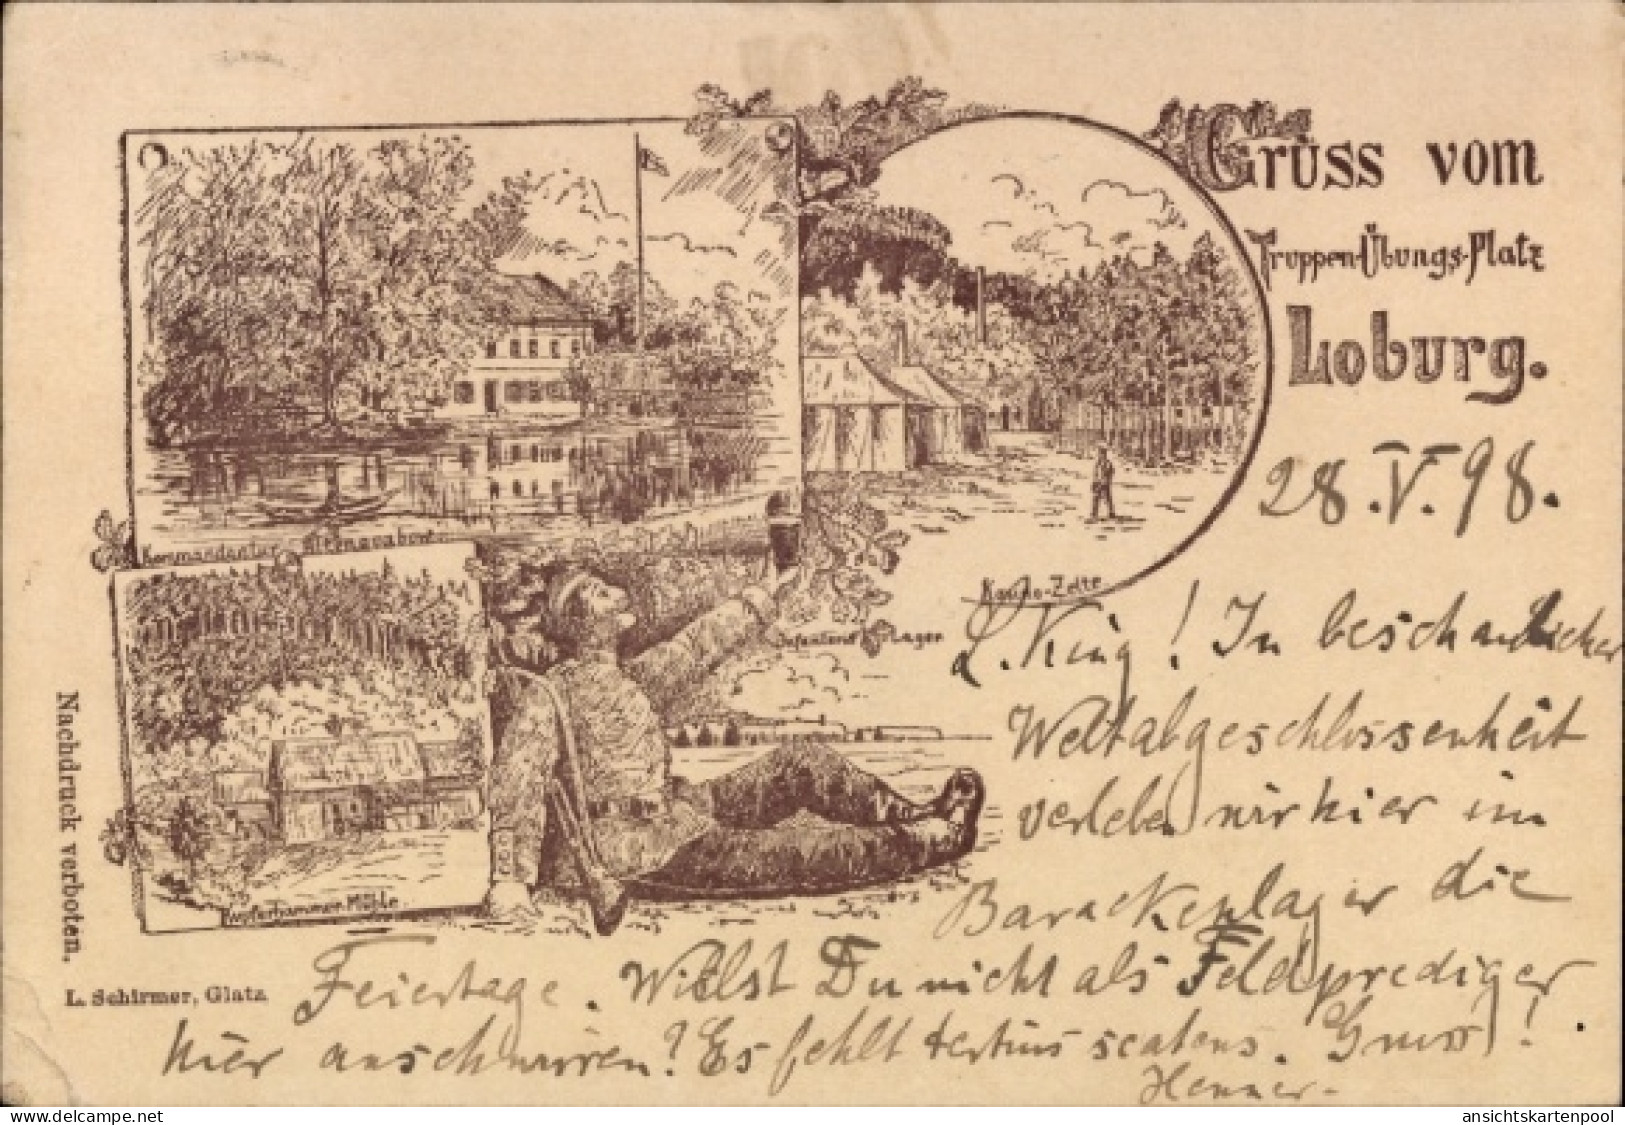 Gruss vom
Truppen-Übungs-Platz
Loburg.
28.V.98.
Kommandantur Altengrabow
Kasino-Zelte
Infanterie Lager
L. King! In beschaulicher
Weltabgeschlossenheit
verleben wir hier im
Barackenlager die
Feiertage. Willst Du nicht als Feldprediger
hier anschwirren? Es fehlt tertius scatens. Gruss!
Henner.
Mühle
Nachdruck verboten.
L. Schirmer, Glatz
ansichtskarten-center.de
ansichtskartenpool